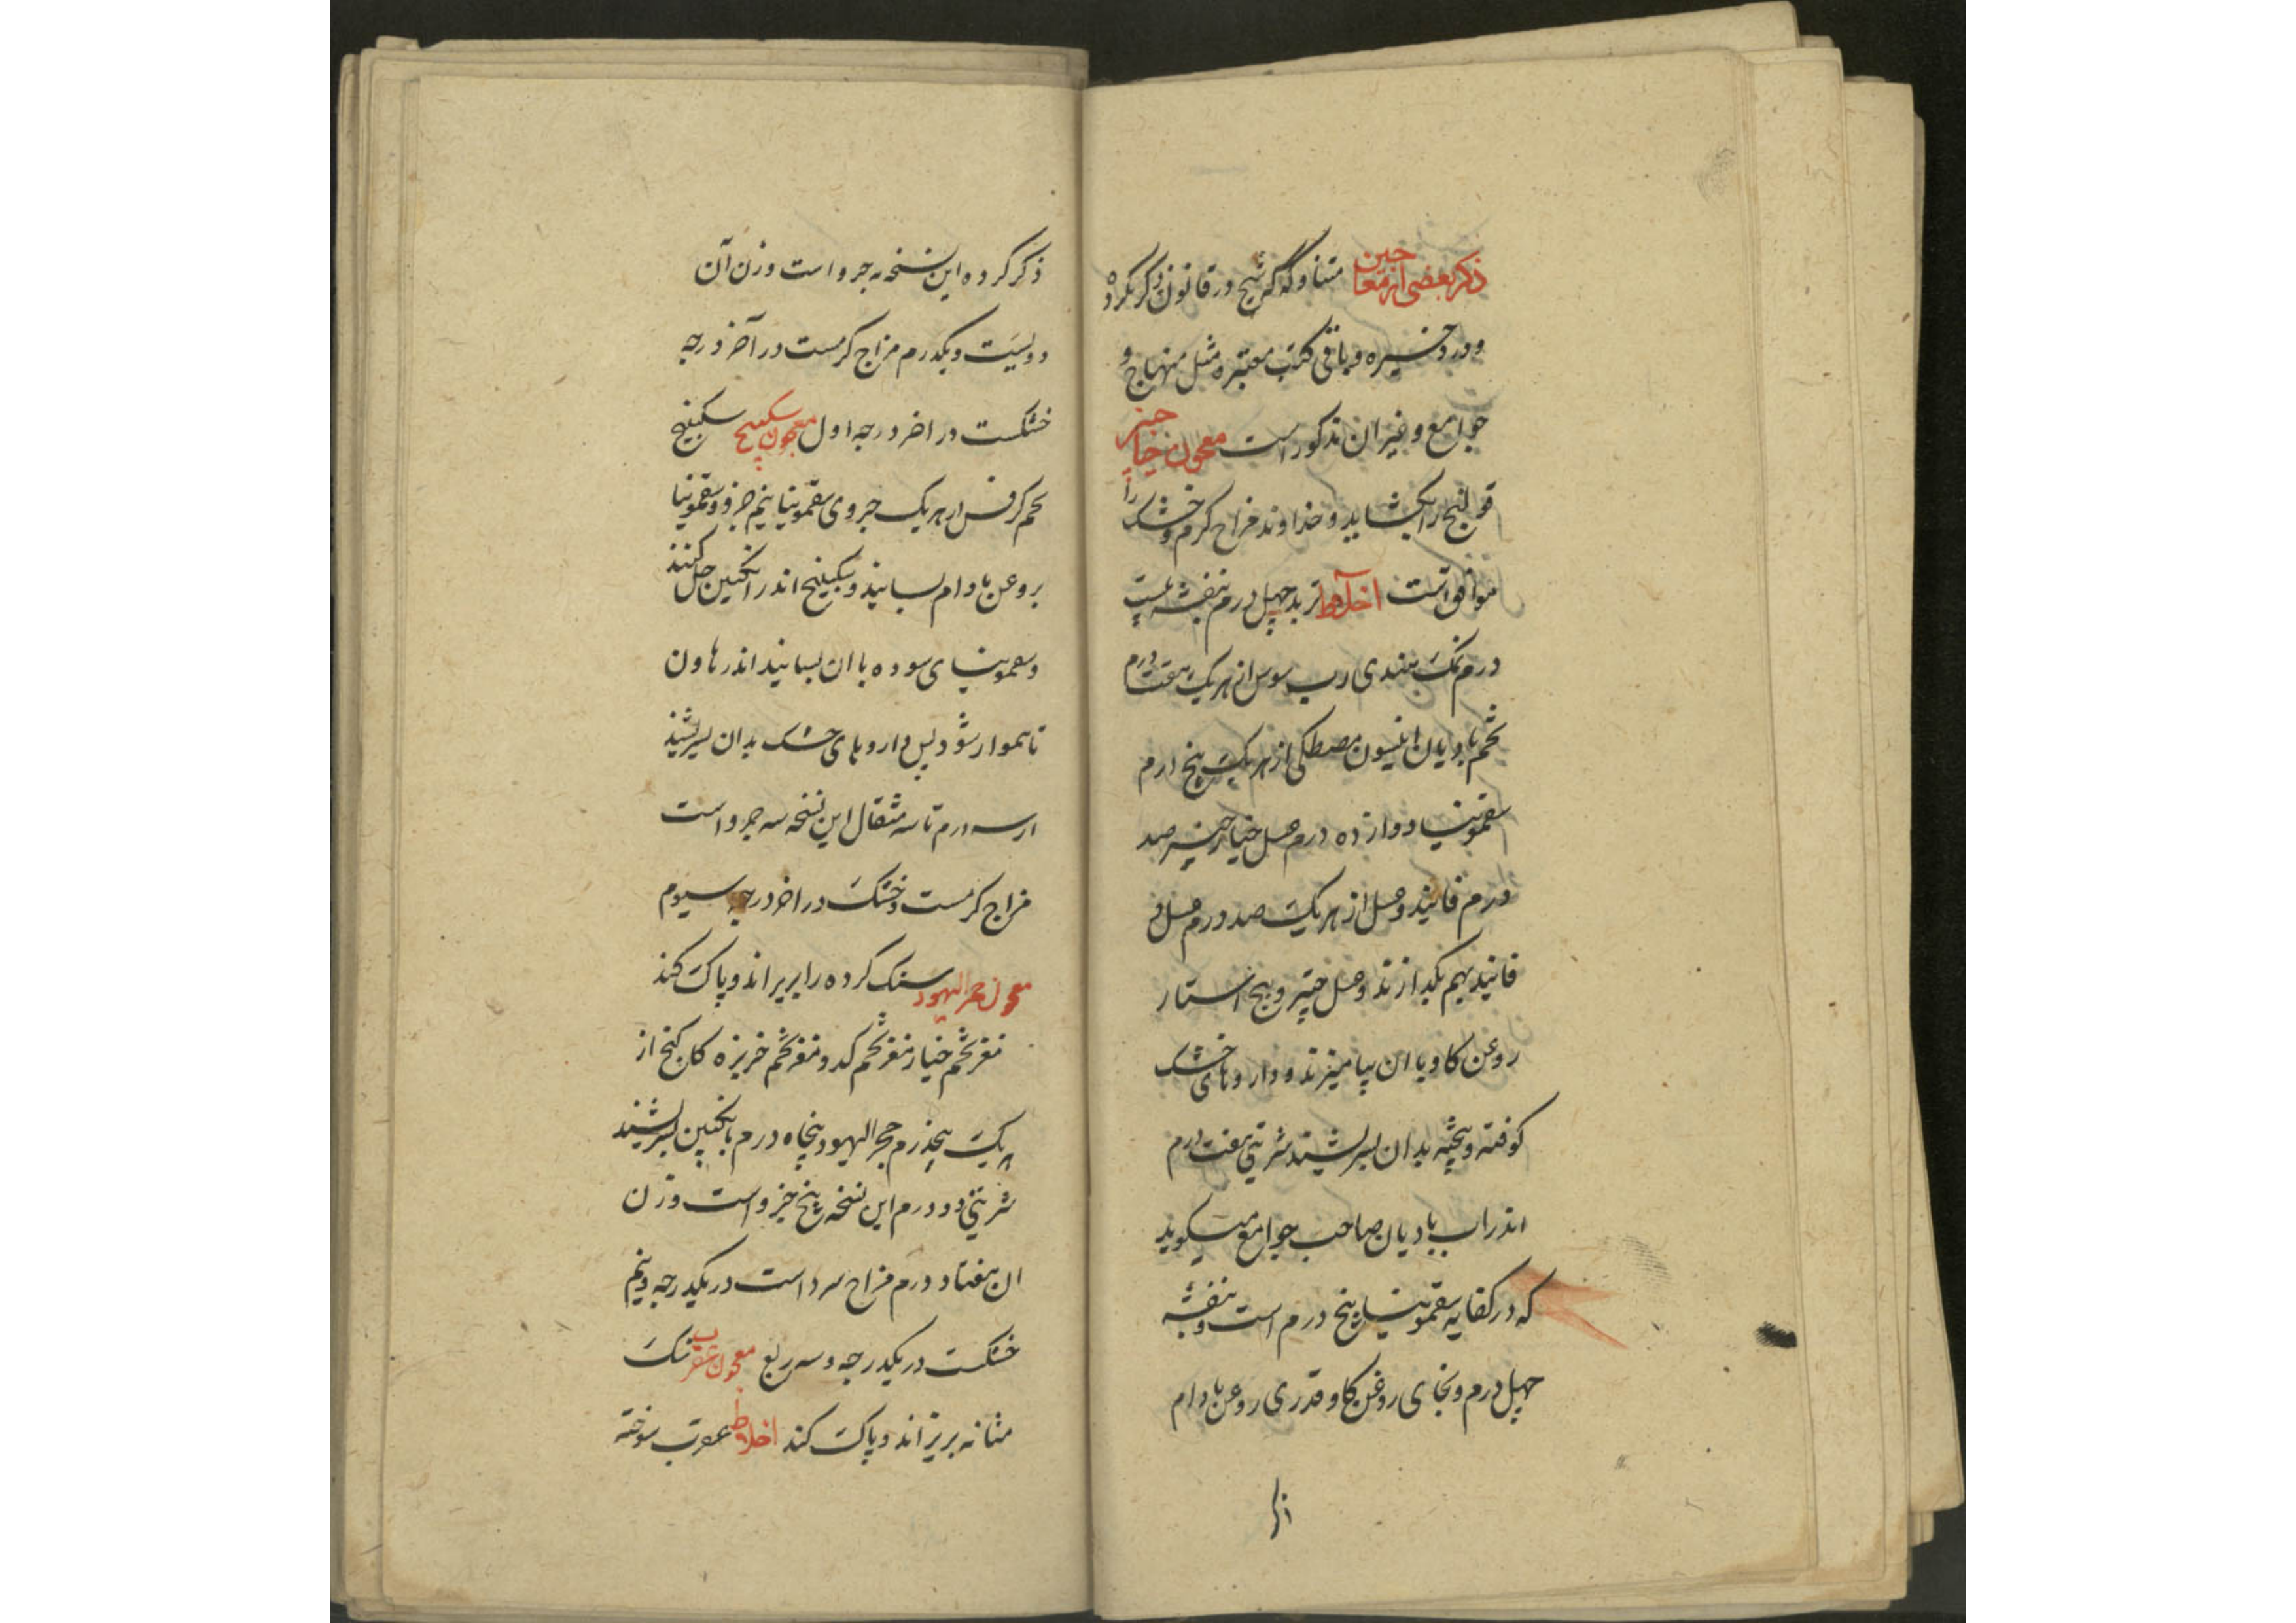 ذکر بعضی از معاجین متناوله که شیخ در قانون ذکر نکرده
و در ذخیره و باقی کتب معتبره مثل منهاج و
جوامع و غیر ان مذکور است معجون خیار چنبر
قولنج را بکشاید و خداوند مزاج کرم و خشک را
موافق است اخلاط تربد چهل درم بنفشه بیست
درم نمک هندی رب سوس از هر یک هفت درم
تخم بادیان انیسون مصطکی از هر یک پنج درم
سقمونیا دوازده درم عسل خیار چنبر صد
درم فانید و عسل از هر یک صد درم عسل و
فانید بهم بکدازند و عسل چنبر و پنج استار
روغن کاو با ان بیامیزند و داروهای خشک
کوفته و بیخته بدان بسرشند شربتی هفت درم
اندر اب بادیان صاحب جوامع میکوید
که در کفایه سقمونیا پنج درم است و بنفشه
چهل درم و بجای روغن کاو قدری روغن بادام
ذکر
ذکر کرده این نسخه جزو است وزن آن
دویست و یکدرم مزاج کرمست در آخر درجه
خشکست در اخر درجه اول معجون سکبینج سکبینج
تخم کرفس از هر یک جزوی سقمونیا نیم جزو سقمونیا
بروغن بادام بسایند و سکبینج اندر انکبین حل کنند
و سقمونیای سوده با ان بسایند اندر هاون
تا هموار شود پس داروهای خشک بدان بسرشند
از سه درم تا سه مثقال این نسخه سه جزو است
مزاج کرمست و خشک در اخر درجه سیوم
معجون حجر الیهود سنک کرده را بریزاند و پاک کند
مغز تخم خیار مغز تخم کدو مغز تخم خربزه کاکنج از
یک پنجدرم حجر الیهود پنجاه درم بانکبین بسرشند
شربتی دو درم این نسخه پنج جزو است وزن
ان هفتاد درم مزاج سرد است در یکدرجه و نیم
خشکست در یکدرجه و سه ربع معجون عقرب سنک
مثانه بریزاند و پاک کند اخلاط عقرب سوخته